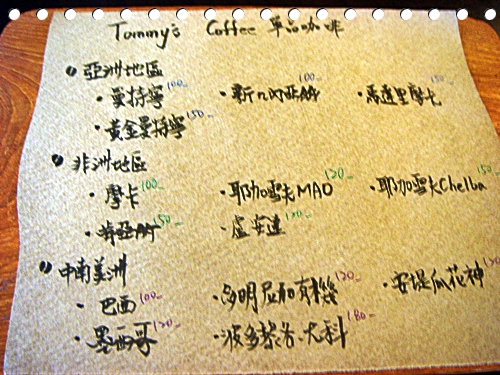 Tommy's Coffee 單品咖啡
亞洲地區
・曼特寧 100- ・新几內亞 100- ・馬達里摩卡 150-
・黃金曼特寧 150-
非洲地區
・摩卡 100- ・耶加雪夫MAO 120- ・耶加雪夫Chelba 150-
・肯亞 150- ・盧安達 120-
中南美洲
・巴西 100- ・多明尼加有機 120- ・安堤瓜花神 120-
・墨西哥 120- ・波多黎各 180-